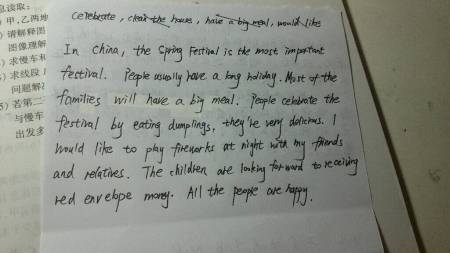 息读取:
) 甲,乙两地
) 请解释图
图像理解
) 求慢车和
) 求线段
问题解
5) 若第二
与慢车
出发多
celebrate, clean the house, have a big meal, would like
In china, the Spring Festival is the most important
festival. People usually have a long holiday. Most of the
families will have a big meal. People celebrate the
festival by eating dumplings, they're very delicious. I
would like to play fireworks at night with my friends
and relatives. The children are looking forward to receiving
red envelope money. All the people are happy.